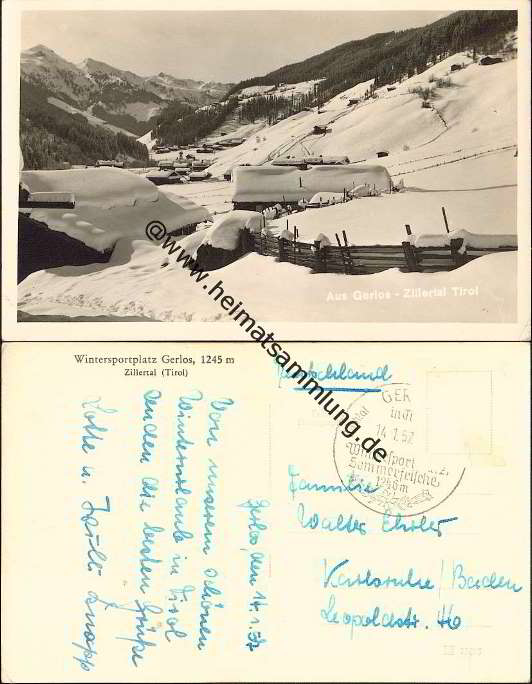 Aus Gerlos - Zillertal Tirol
@www.heimatsammlung.de
Wintersportplatz Gerlos, 1245 m
Zillertal (Tirol)
Gerlos, den 14.1.57
Von unserem schönen
Winterurlaub in Tirol
senden die besten Grüße
Lotte u.
Deutschland
GER
14.1.57
Wintersport
Sommerfrische
1246 m
Familie
Walter Ehrler
Karlsruhe/Baden
Leopoldstr. 46